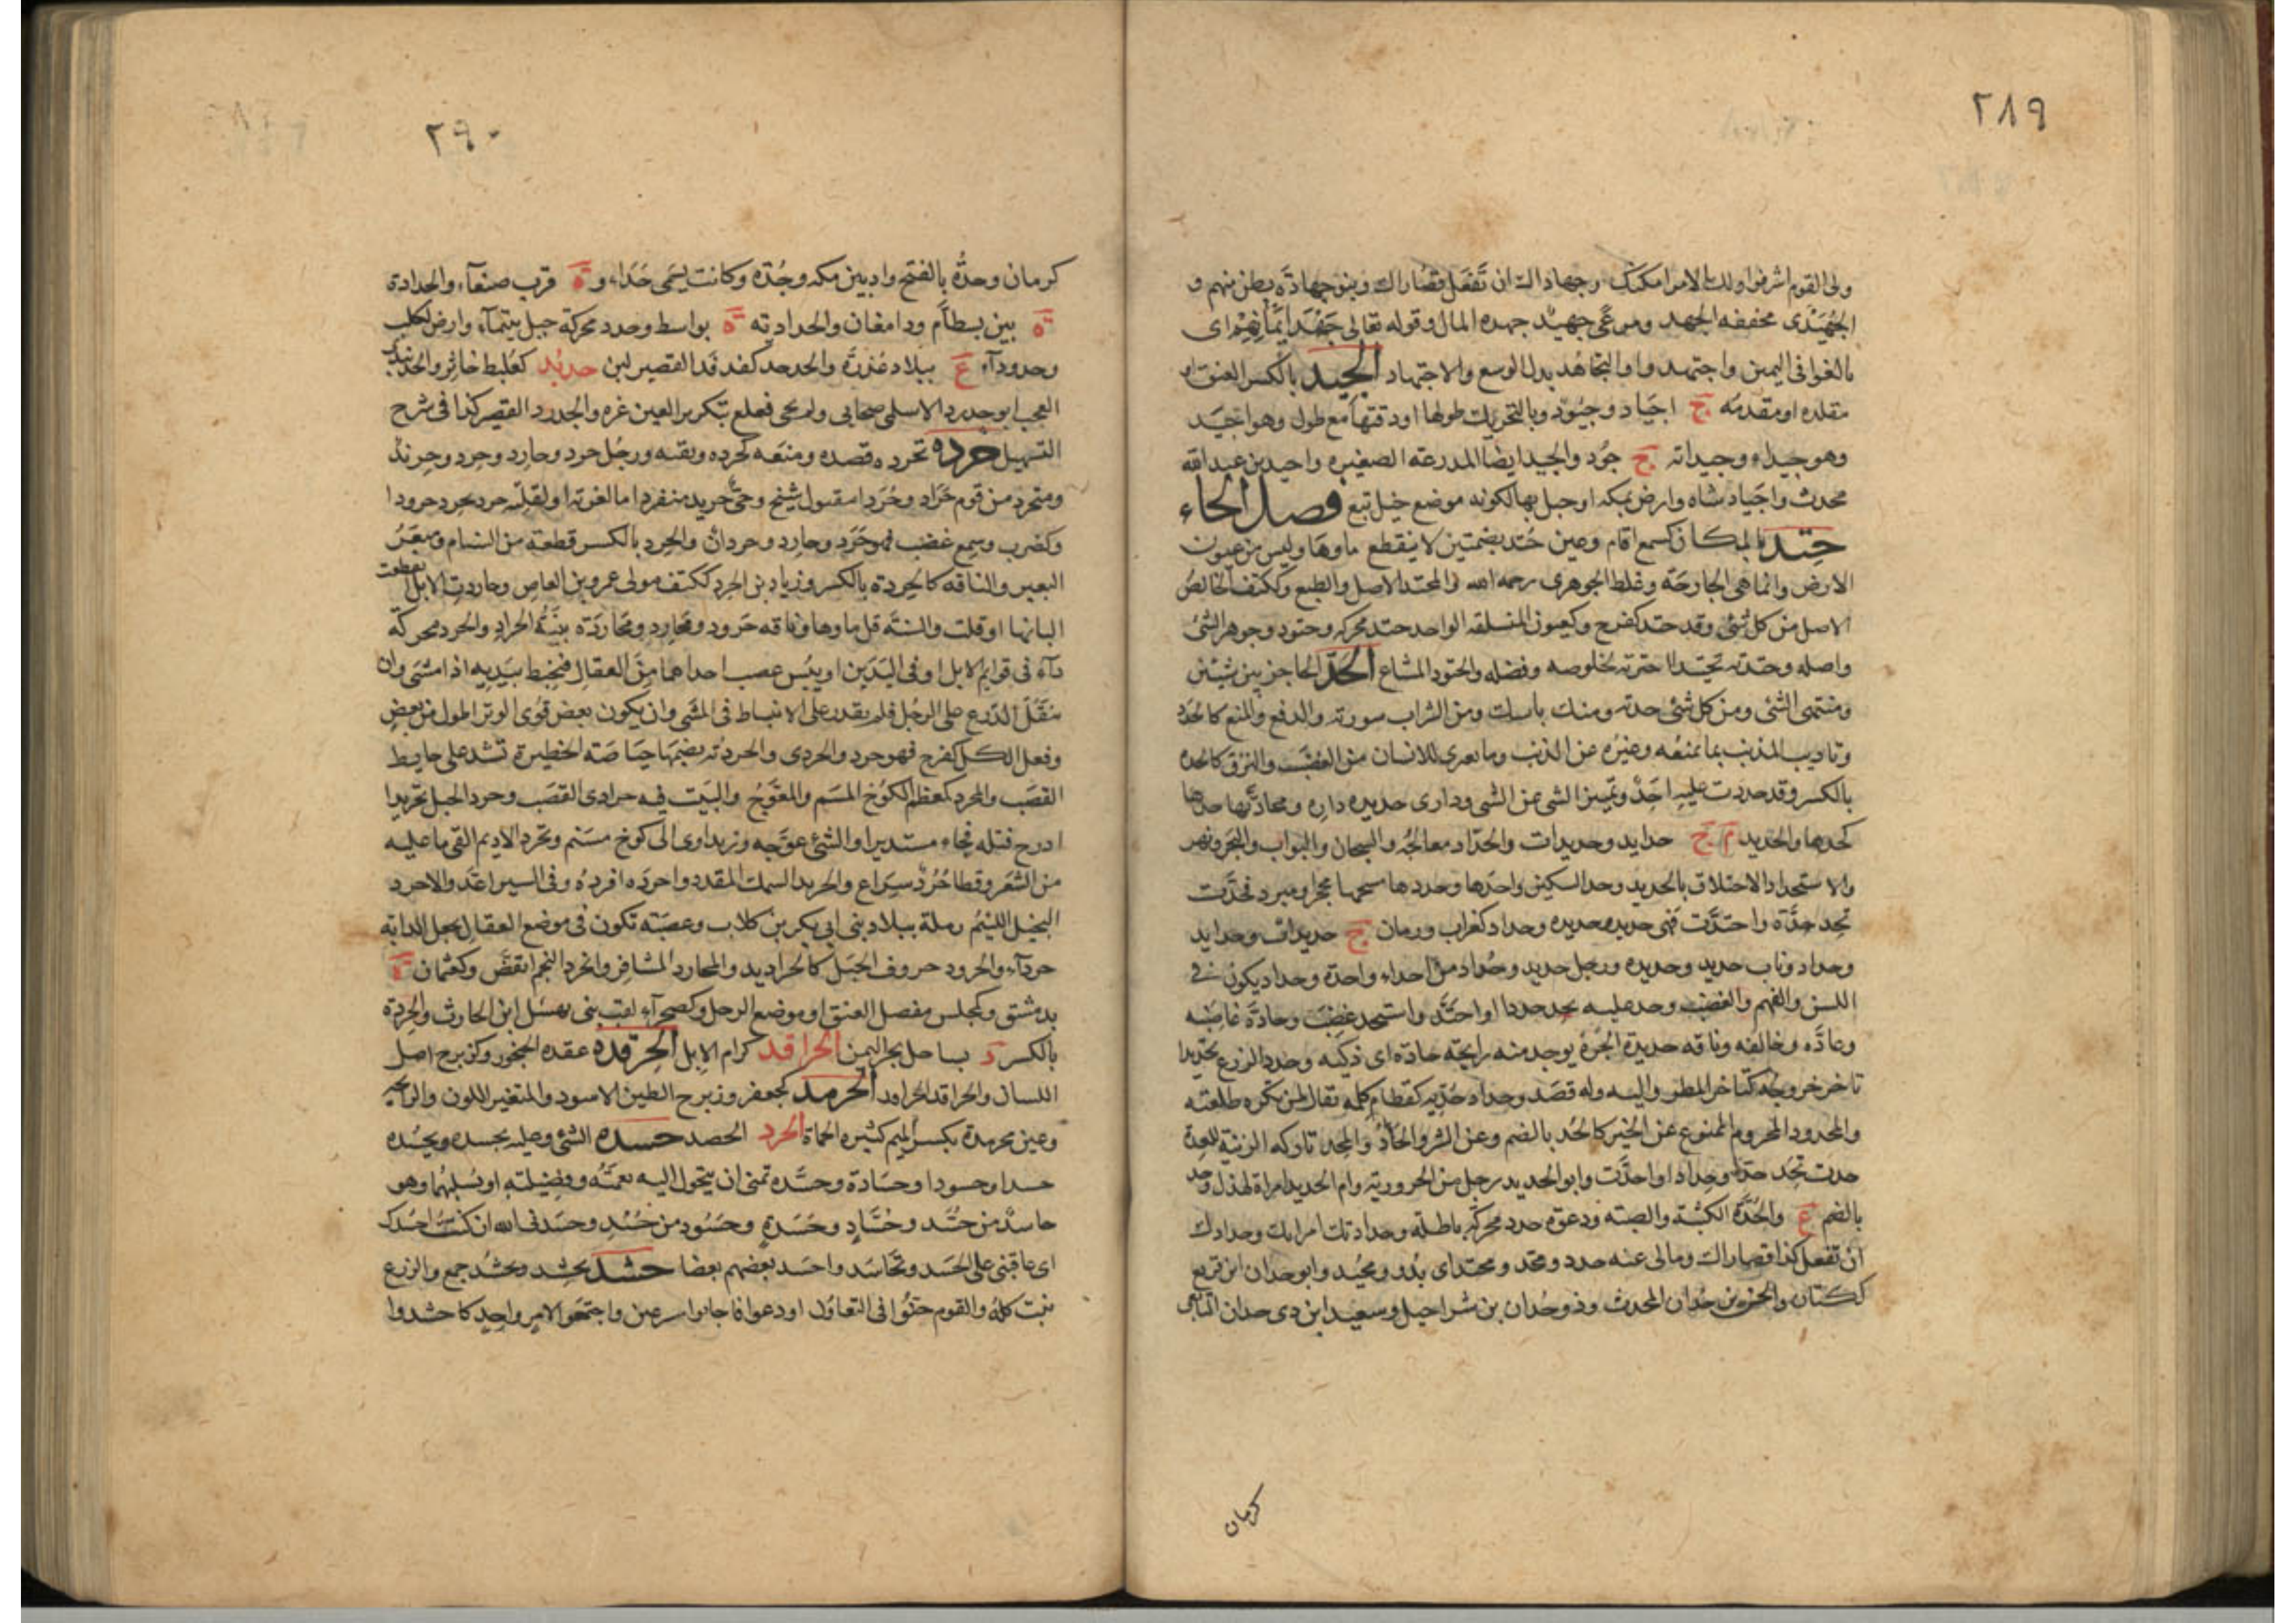 ٢٨٩
ولى القوم اشرفوا ولك الامر امكنك وجهاداك ان تفعل قصاراك وبنو جهادة بطن منهم و
الجُهَيْدى مخففه الجهد ومرعًى جهيد جهده المال وقوله تعالى جَهْدَ اَيْمَانِهِمْ اى
بالغوا فى اليمين واجتهدوا والتجاهد بذل الوسع والاجتهاد الجيد بالكسر العنق او
مقلده او مقدمه ج اجياد وجيود وبالتحريك طولها او دقتها مع طول وهو اجيد
وهو جيداء وجيدانه ج جود والجيد ايضا المدرعة الصغيره واجيد بن عبد الله
محدث واجياد شاه وارض بمكه او جبل بها لكونه موضع خيل تبع فصل الحاء
حتد بالمكان كسمع اقام وعين حتد بضمتين لا ينقطع ماوها وليس من عيون
الارض وانما هى الجارحة وغلط الجوهرى رحمه الله والمحتد الاصل والطبع وككتف الخالص
الاصل من كل شئ وقد حتد كفرح وكعيون المنسلقه الواحد حتد محركه وحتود وجوهر الشئ
واصله وحتدته تحتيدا اخترته لخلوصه وفضله والحتود المشاع الحَدّ الحاجز بين شيئين
ومنتهى الشئ ومن كل شئ حدته ومنك باسك ومن الشراب سورته والدفع والمنع كالحدد
وتاديب المذنب بما يمنعه وغيره عن الذنب وما يعرى للانسان من الغضب والنزق كالحده
بالكسر وقد حددت عليه احد وتمييز الشى عن الشى ودارى حديده داره ومحادتها حدها
كحدها والحديد م ج حدايد وحديدات والحداد معالجه والسجان والبواب والبحر ونهر
والاستحداد الاحتلاق بالحديد وحد السكين واحدها وحددها مسحها بحجر او مبرد فحدت
تحد حدة واحتدت فهى حديد وحديده وحداد كغراب ورمان ج حديدات وحدايد
وحداد وناب حديد وحديده ورجل حديد وحداد من احداء واحدة وحداد يكون فى
اللسن والفهم والغضب وحد عليه يحد حددا واحتد واستحد غضب وحادة غاضبه
وعاده وخالفه وناقه حديدة الجرة يوجد منه رايحة حادة اى ذكيه وحدد الزرع تحديدا
تاخر خروجه لتاخر المطر واليه وله قصد وحداد حديه كقطام كلمه تقال لمن تكره طلعته
والمحدود المحروم الممنوع عن الخير كالحد بالضم وعن الشر والحاد والمحد تاركه الزينة للعدة
حدت تحد حدا وحدادا واحدت وابو الحديد رجل من الحروريه وام الحديد امراة لهذل وحد
بالضم ع والحدة الكثبة والصبة ودعوة حدد محركه باطله وحدادتك امراتك وحدادك
ان تفعل كذا قصاراك ومالى عنه حدد ومحد ومحتد اى بد ومحيد وابو حدان ابن قريع
ككتان والحسن بن حدان المحدث وذو حدان بن شراحيل وسعيد ابن ذى حدان التابعى
كرمان
٢٩٠
كرمان وحدُّه بالفتح واد بين مكه وجُدّه وكانت يسمى حَدَاء و ة قرب صنعاء والحدادة
ة بين بسطام ودامغان والحداديه ة بواسط وحدد محركة جبل بتيماء وارض لكلب
وحدوداء ع ببلاد عذرة والحدحد كفدفد القصير لبن حدبد كعلبط خاثر والحدبدبا
العجب ابو حدرد الاسلمى صحابى ولم يجى فعلع بتكرير العين غره والحدرد القصير كذا فى شرح
التسهيل حرده تحرده قصده ومنعه كحرده ونقبه ورجل حرد وحارد وحرد وحريد
ومتحرد من قوم حراد وحردا مقبول شيخ وحى حريد منفرد اما لغوته او لقلته حرد يحرد حرودا
وكضرب وسمع غضب فهو حرد وحارد وحردان والحرد بالكسر قطعة من السنام ومبعر
البعير والناقه كالحردة بالكسر وزياد بن الحرد ككتف مولى عمرو بن العاص وحاردت الابل انقطعت
البانها او قلت والسنة قل ماوها وناقه حرود ومحارد ومحاردة بينة الحراد والحرد محركة
داء فى قوايم الابل او فى اليدين او يبس عصب احداهما من العقال فيخبط بيديه اذا مشى وان
يثقل الدرع على الرجل فلم يقدر على الانبساط فى المشى وان يكون بعض قوى الوتر اطول من بعض
وفعل الكل كفرح فهو حرد والحردى والحردية بضمها حياصة الحظيرة تشد على حايط
القصب والمحرد كمعظم الكوخ المسنم والمعوج والبيت فيه حرادى القصب وحرد الحبل تحريدا
ادرج فتله فجاء مستديرا والشئ عوجه وزيد اوى الى كوخ مسنم وتحرد الاديم القى ما عليه
من الشعر وقطا حرد سراع والحريد السمك المقدد واحرده افرده وفى السير اغذ والاحرد
البخيل اللئيم رملة ببلاد بنى ابى بكر بن كلاب وعصبة تكون فى موضع العقال يجعل الدابة
حرداء والحرود حروف الحبل كالحراديد والمحارد المشافر وانحرد النجم انقض وكعثمان ة
بدمشق وكمجلس مفصل العنق او موضع الرحل وكصحراء لقب بنى نهشل ابن الحارث والحردة
بالكسر د بساحل بحر اليمن الحراقد كرام الابل الحرقده عقده الحنجور وكزبرج اصل
اللسان والحراقد الحراود الحرمد كجعفر وزبرج الطين الاسود والمتغير اللون والرايحه
وعين محرمدة بكسر الميم كثيره الحماة الحزد الحصد حسده الشئ وعليه يحسده ويحسده
حسدا وحسودا وحسادة وحسده تمنى ان يتحول اليه نعمته وفضيلته او يسلبهما وهو
حاسد من حسد وحساد وحسدة وحسود من حسد وحسدنى الله ان كنت احسدك
اى عاقبنى على الحسد وتحاسدوا حسد بعضهم بعضا حشد يحشد ويحشد جمع والزرع
نبت كله والقوم حفوا فى التعاون او دعوا فاجابوا مسرعين واجتمعوا لامر واحد كاحشدوا